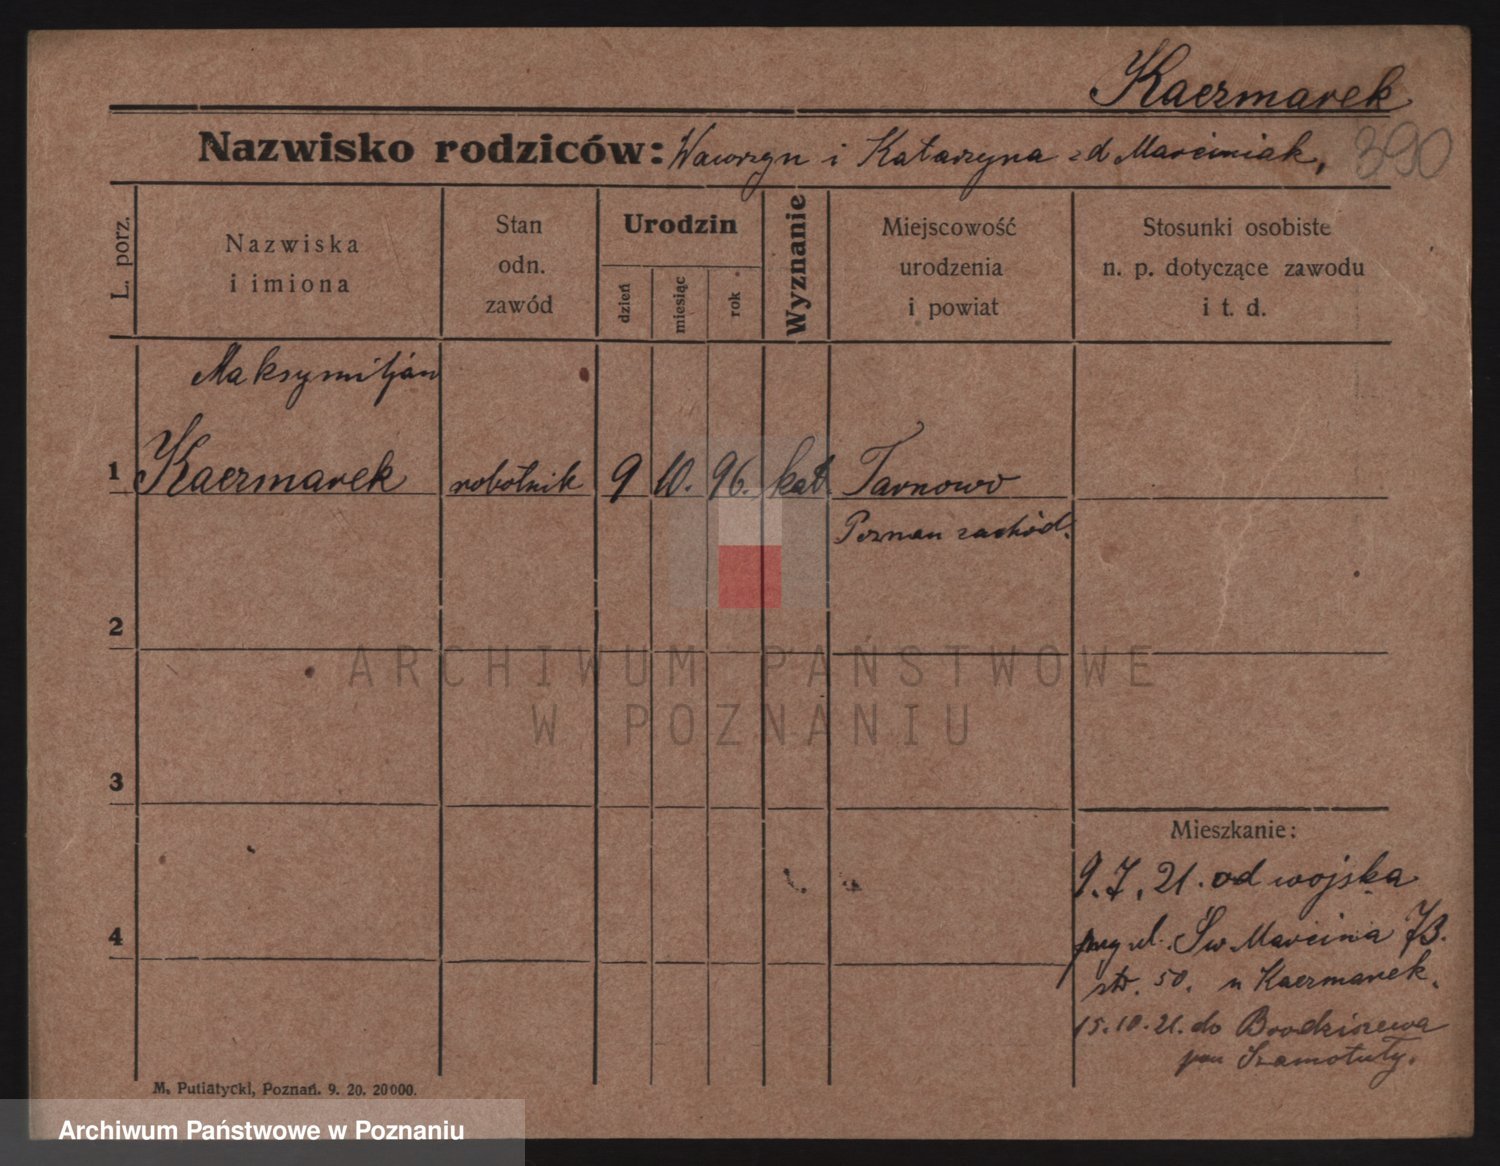 Kaczmarek
Nazwisko rodziców: Wawrzyn i Katarzyna zd Marciniak,
390
L. porz.
Nazwiska
i imiona
Stan
odn.
zawód
Urodzin
dzień
miesiąc
rok
Wyznanie
Miejscowość
urodzenia
i powiat
Stosunki osobiste
n. p. dotyczące zawodu
i t. d.
Maksymiljan
1 Kaczmarek robotnik 9 10. 96. kat. Tarnowo
Poznan zachód.
2
ARCHIWUM PAŃSTWOWE
W POZNANIU
3
Mieszkanie:
9.7.21. od wojska
ul. Św Marcina
4
str. 50. u Kaczmarek.
15.10.21. do Brodziszewa
pow Szamotuły.
M. Putiatycki, Poznań. 9. 20. 20000.
Archiwum Państwowe w Poznaniu